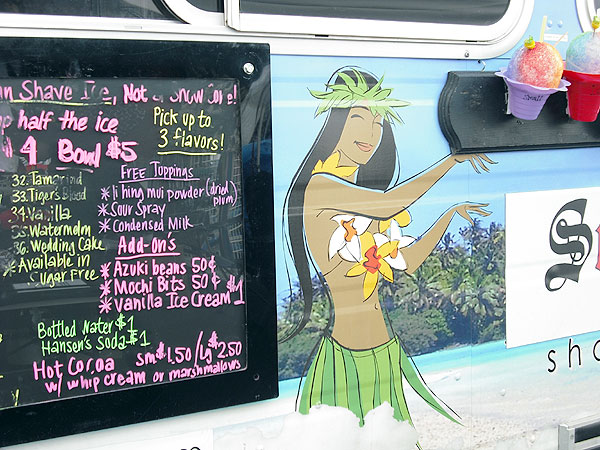 Shave Ice, Not a Snow Cone!
half the ice
Pick up to
3 flavors!
4 Bowl $5
Free Toppings
32. Tamarind
33. Tiger's Blood
34. Vanilla
35. Watermeln
36. Wedding Cake
* Available in
Sugar Free
* li hing mui powder (dried plum)
* Sour Spray
* Condensed Milk
Add-on's
* Azuki beans 50¢
* Mochi Bits 50¢
* Vanilla Ice Cream $1
Bottled Water $1
Hansen's Soda $1
Hot Cocoa sm $1.50 / lg $2.50
w/ whip cream or marshmallows
Small
S
sha